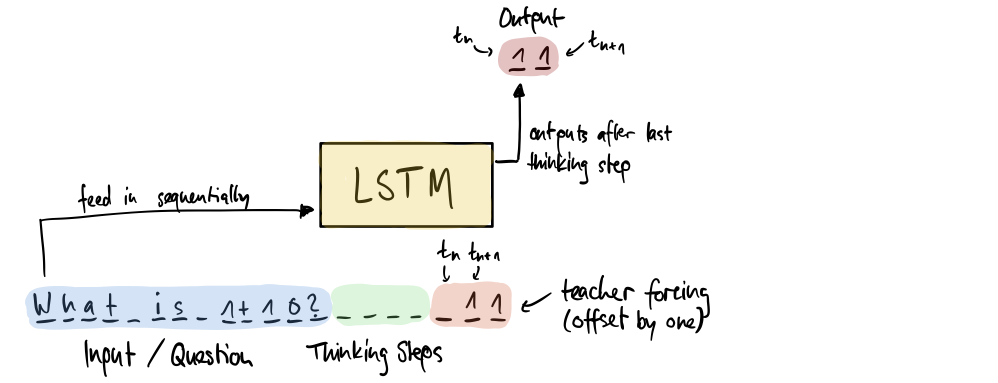 Output
tn
1 1
tn+1
outputs after last
thinking step
LSTM
feed in sequentially
tn tn+1
What_is_1+10?
_ _ _ _
_ 1 1
teacher forcing
(offset by one)
Input / Question
Thinking Steps